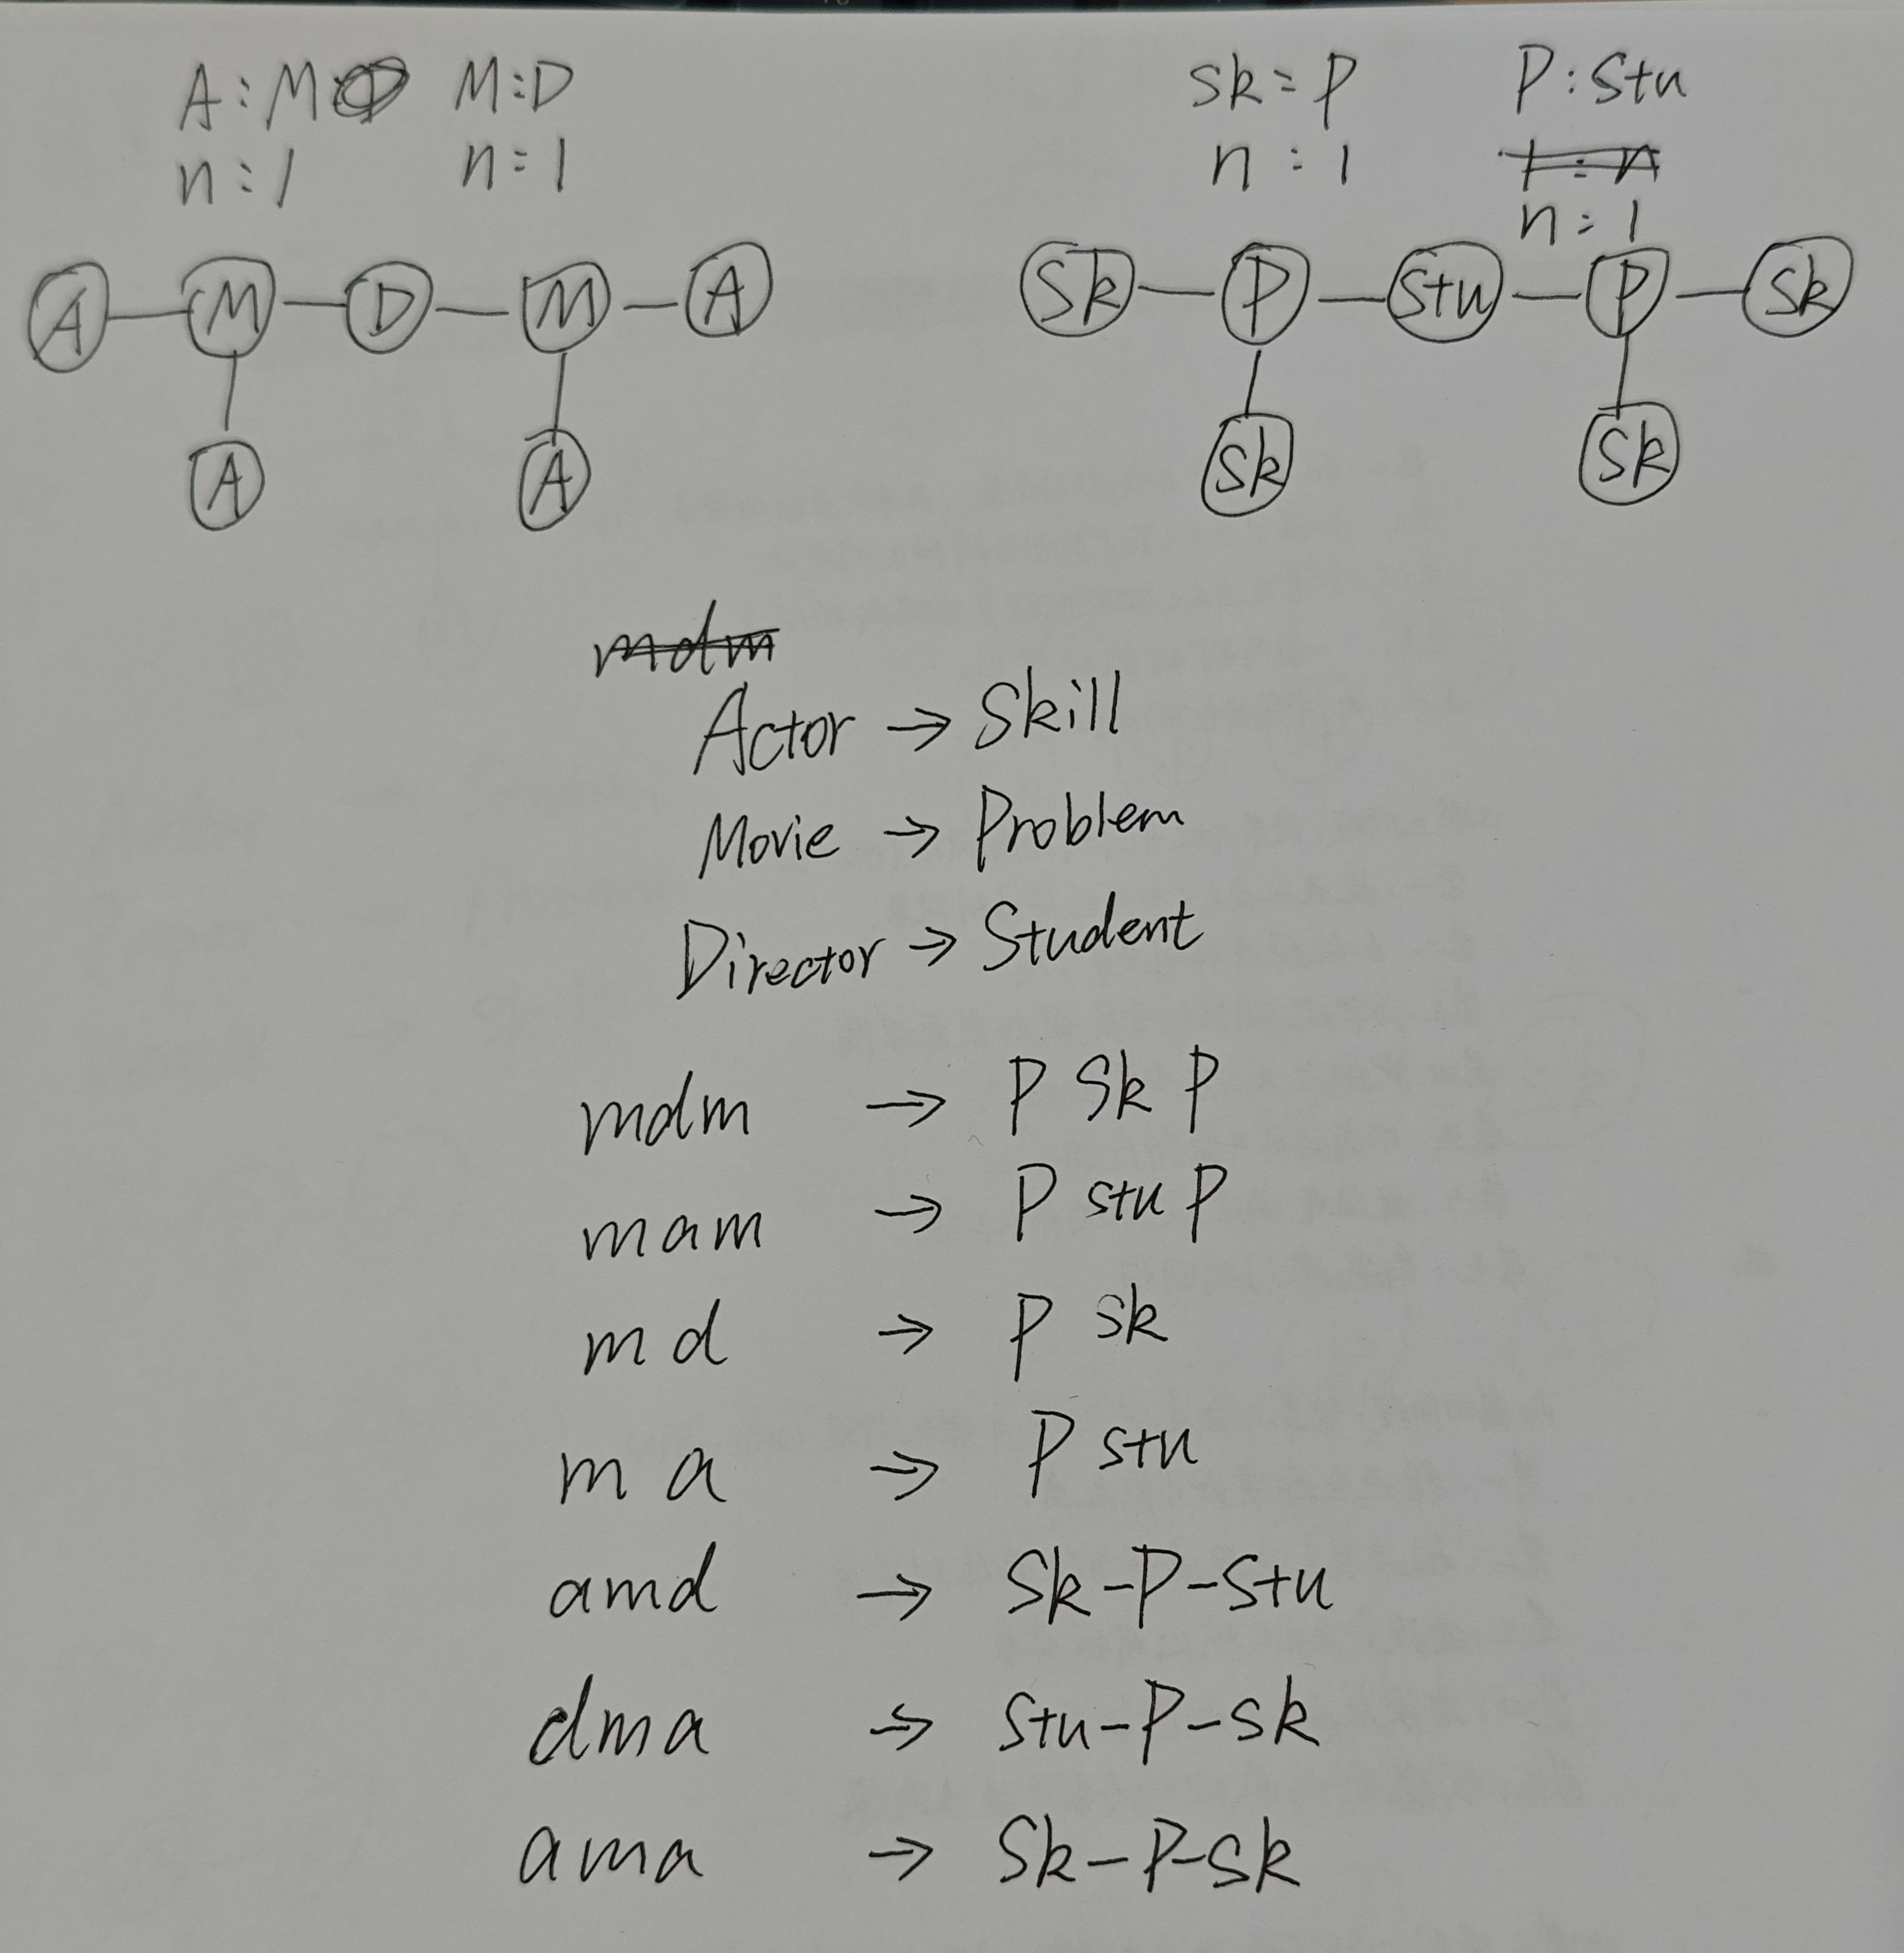 A:M M:D
n:1 n=1
sk=P P:Stu
n:1 1:n
n:1
A M D M A
A A
Sk P Stu P Sk
Sk Sk
mdm
Actor → Skill
Movie → Problem
Director → Student
mdm → P Sk P
mam → P stu P
md → P sk
ma → P stu
amd → Sk-P-Stu
dma → Stu-P-sk
ama → Sk-P-sk